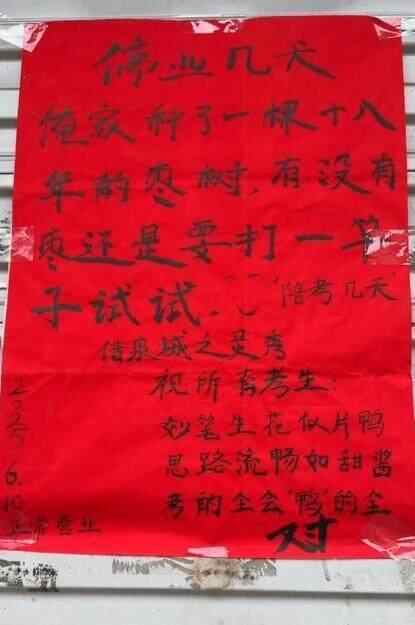 俺家种了一棵十八
年的枣树，有没有
枣还是要打一竿
子试试．
陪考几天
借泉城之灵秀
祝所有考生：
妙笔生花似片鸭
思路流畅如甜酱
考的全会"鸭"的全
对
2025
6.10
正常营业